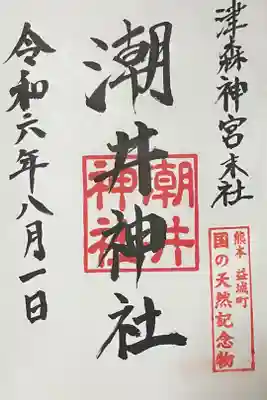 津森神宮末社
熊本 益城町
国の天然記念物
潮井神社
潮井神社
令和六年八月一日